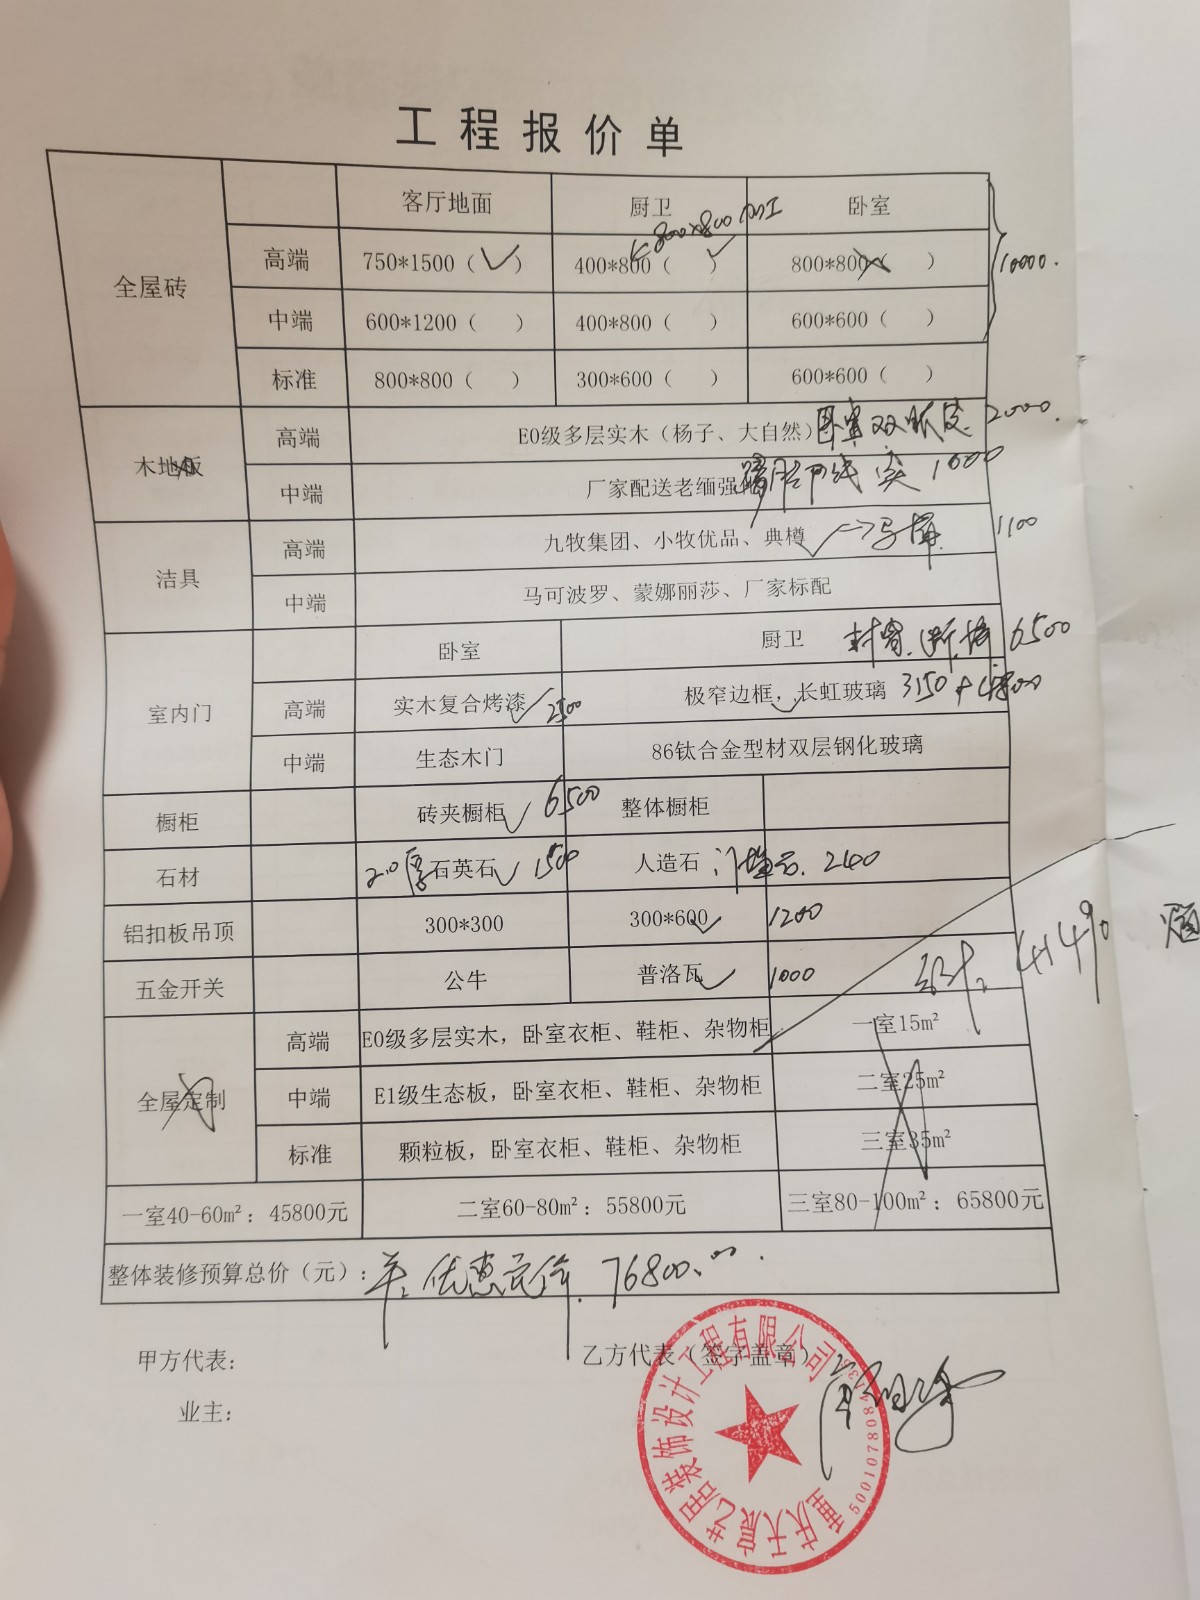 工程报价单
客厅地面 厨卫 卧室
800*800加工
全屋砖 高端 750*1500（✓） 400*800（✓） 800*800（ ） 10000.
中端 600*1200（ ） 400*800（ ） 600*600（ ）
标准 800*800（ ） 300*600（ ） 600*600（ ）
木地板 高端 E0级多层实木（杨子、大自然） 卧室双 2000.
中端 厂家配送老缅强 1000
洁具 高端 九牧集团、小牧优品、典樽 ✓ 1100
中端 马可波罗、蒙娜丽莎、厂家标配
室内门 卧室 厨卫 6500
高端 实木复合烤漆 ✓ 2500 极窄边框，长虹玻璃 ✓ 3150+
中端 生态木门 86钛合金型材双层钢化玻璃
橱柜 砖夹橱柜 ✓ 6500 整体橱柜
石材 2.0厚石英石 ✓ 1500 人造石 240
铝扣板吊顶 300*300 300*600 ✓ 1200
五金开关 公牛 普洛瓦 ✓ 1000
全屋定制 高端 E0级多层实木，卧室衣柜、鞋柜、杂物柜 一室15m²
中端 E1级生态板，卧室衣柜、鞋柜、杂物柜 二室25m²
标准 颗粒板，卧室衣柜、鞋柜、杂物柜 三室35m²
一室40-60m²：45800元 二室60-80m²：55800元 三室80-100m²：65800元
整体装修预算总价（元）： 优惠 76800.00.
甲方代表： 乙方代表（签字盖章）
业主：
重庆天宸艺居装饰设计工程有限公司